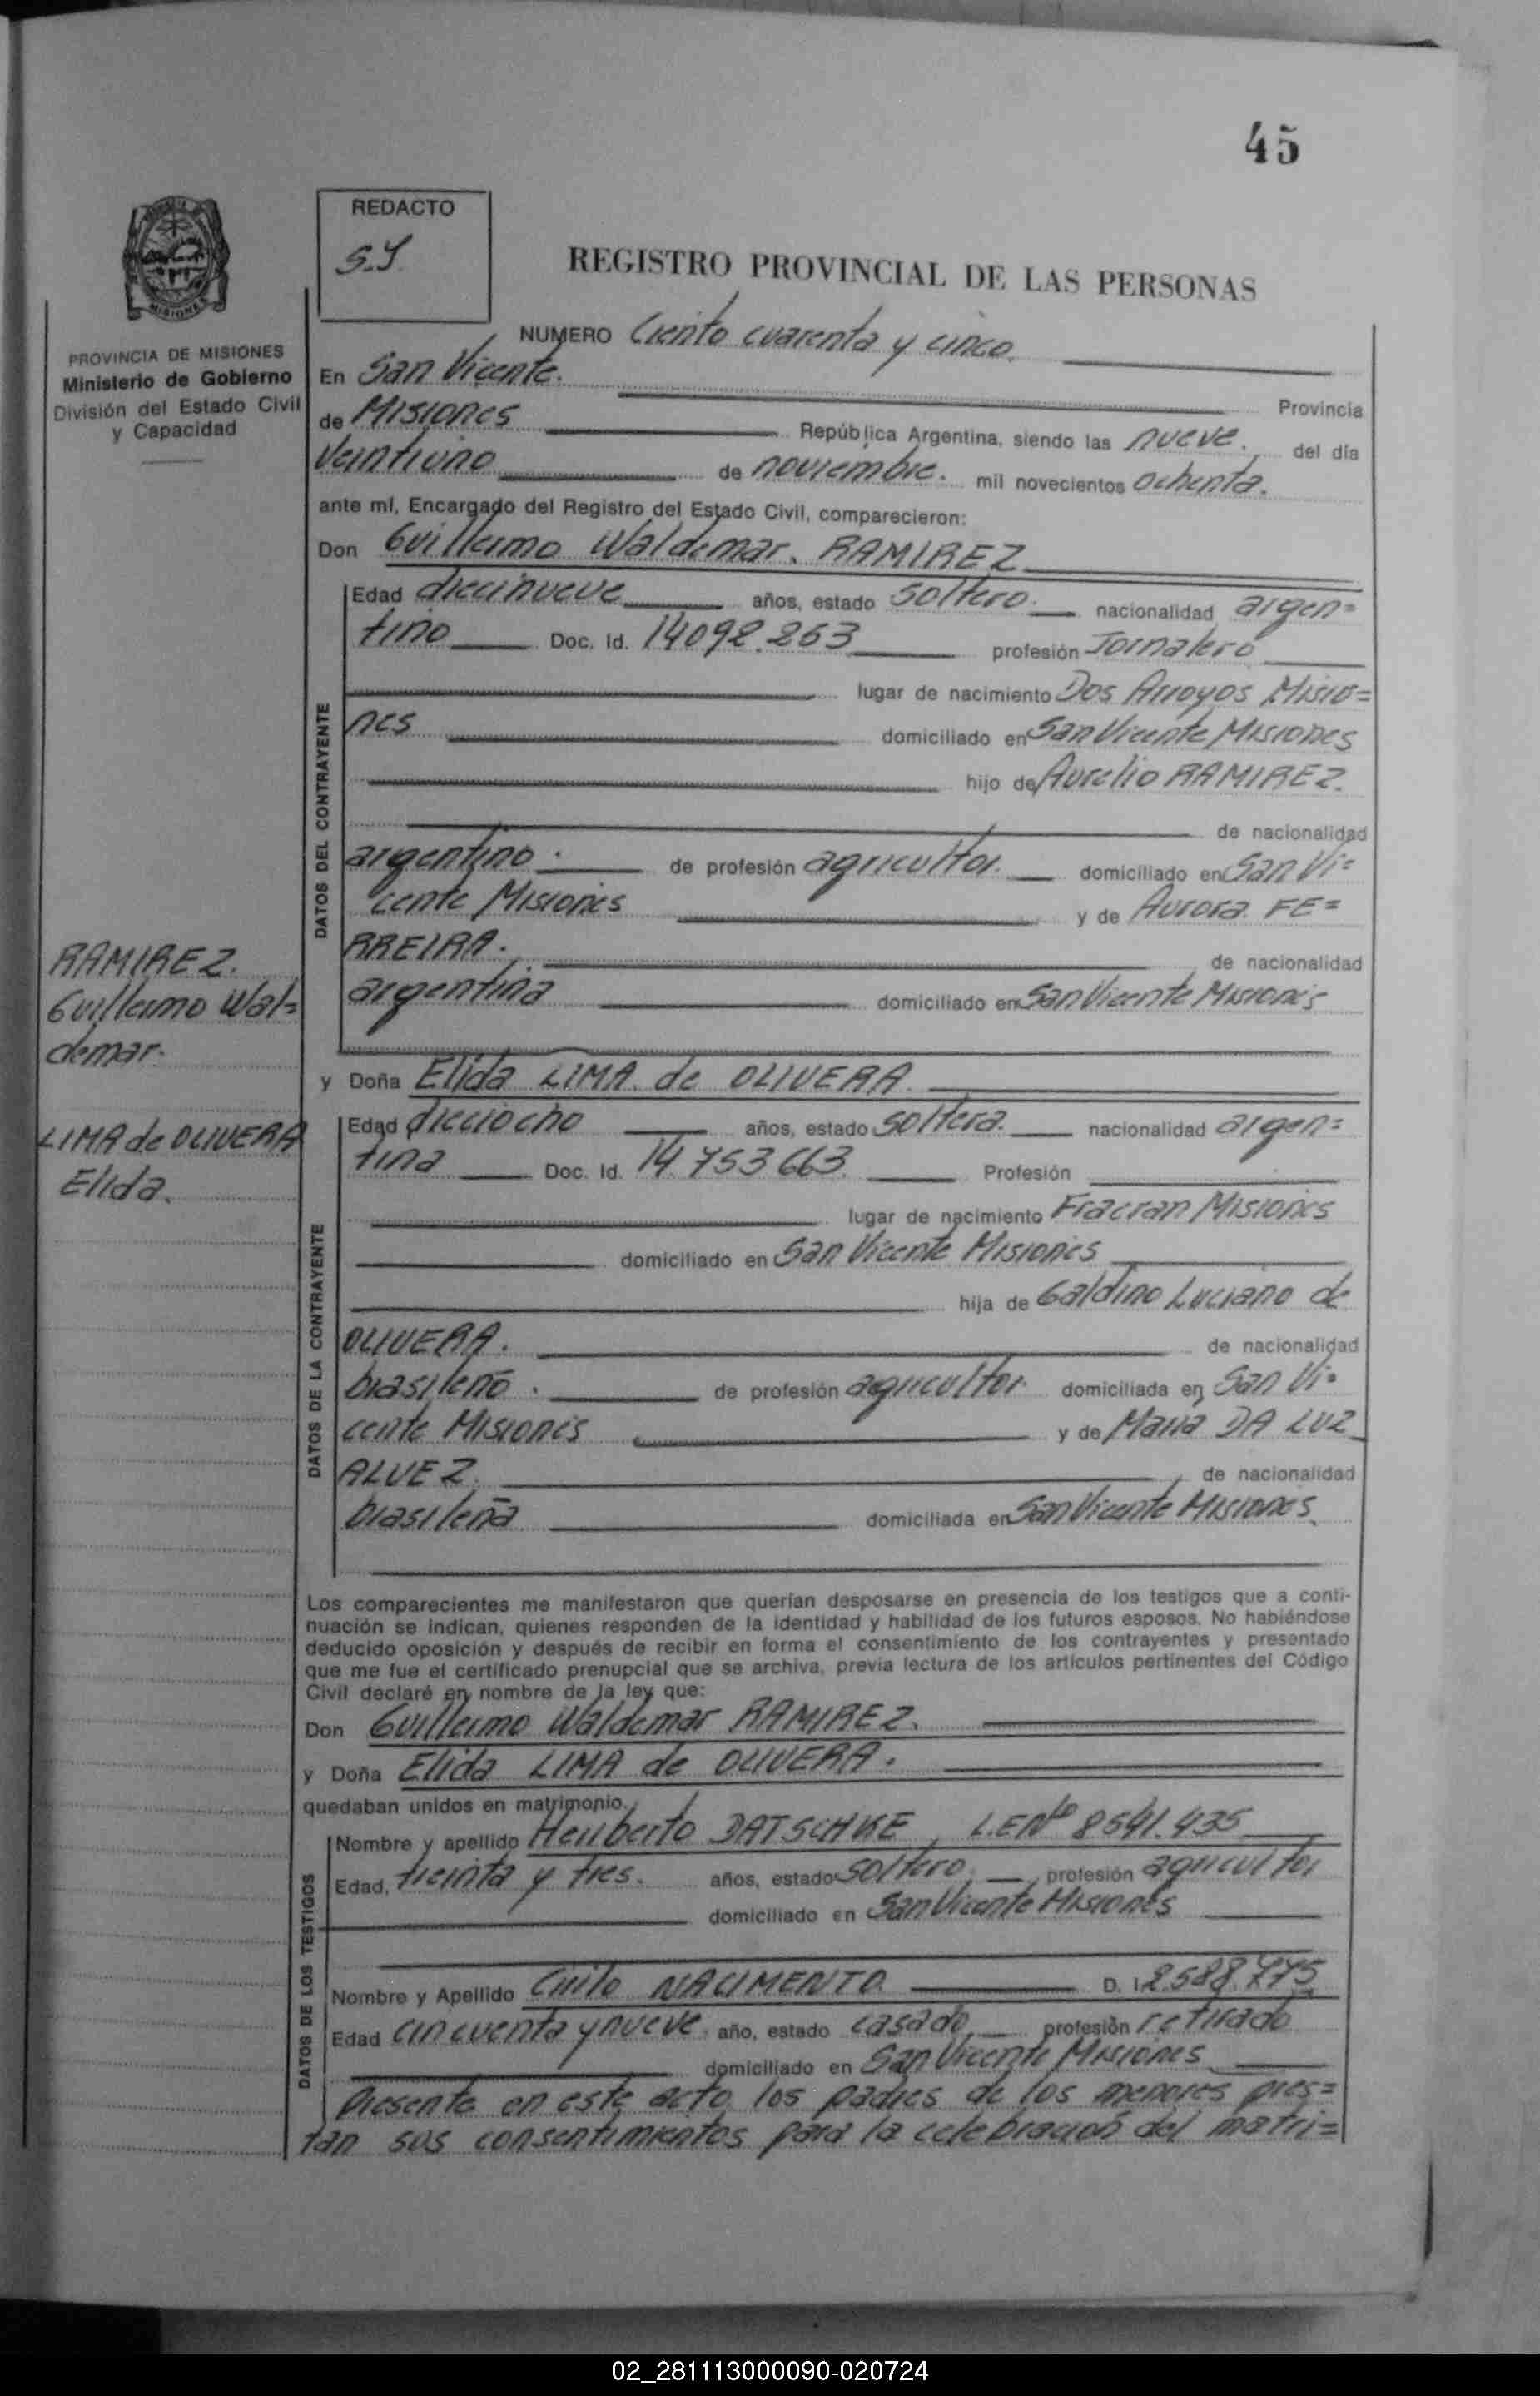 45
REDACTO
S.Y.
REGISTRO PROVINCIAL DE LAS PERSONAS
MISIONES
PROVINCIA DE MISIONES
Ministerio de Gobierno
División del Estado Civil
y Capacidad
NUMERO Ciento cuarenta y cinco.
En San Vicente. Provincia
de Misiones República Argentina, siendo las nueve. del día
Veintiuno de noviembre. mil novecientos ochenta.
ante mí, Encargado del Registro del Estado Civil, comparecieron:
Don Guillermo Waldemar. RAMIREZ
DATOS DEL CONTRAYENTE
Edad diecinueve años, estado soltero. nacionalidad argen=
tino Doc. Id. 14092.263 profesión Jornalero
lugar de nacimiento Dos Arroyos Misio=
nes domiciliado en San Vicente Misiones
hijo de Aurelio RAMIREZ.
de nacionalidad
argentino. de profesión agricultor. domiciliado en San Vi=
cente Misiones y de Aurora FE=
RREIRA. de nacionalidad
argentina domiciliado en San Vicente Misiones
RAMIREZ.
Guillermo Wal=
demar.
y Doña Elida LIMA de OLIVERA.
LIMA de OLIVERA
Elida.
DATOS DE LA CONTRAYENTE
Edad dieciocho años, estado soltera. nacionalidad argen=
tina Doc. Id. 14.753663. Profesión
lugar de nacimiento Fracran Misiones
domiciliado en San Vicente Misiones
hija de Galdino Luciano de
OLIVERA. de nacionalidad
brasileño. de profesión agricultor domiciliada en San Vi=
cente Misiones y de Maria DA LUZ
ALVEZ. de nacionalidad
brasileña domiciliada en San Vicente Misiones.
Los comparecientes me manifestaron que querían desposarse en presencia de los testigos que a conti-
nuación se indican, quienes responden de la identidad y habilidad de los futuros esposos. No habiéndose
deducido oposición y después de recibir en forma el consentimiento de los contrayentes y presentado
que me fue el certificado prenupcial que se archiva, previa lectura de los artículos pertinentes del Código
Civil declaré en nombre de la ley que:
Don Guillermo Waldemar RAMIREZ.
y Doña Elida LIMA de OLIVERA.
quedaban unidos en matrimonio.
DATOS DE LOS TESTIGOS
Nombre y apellido Heriberto DATSCHKE, L.E Nº 8541.435
Edad, treinta y tres. años, estado soltero. profesión agricultor
domiciliado en San Vicente Misiones
Nombre y Apellido Cirilo NACIMENTO. D. I. 2588.775
Edad cincuenta y nueve. año, estado casado, profesión retirado
domiciliado en San Vicente Misiones
Presente en este acto los padres de los menores pres=
tan sus consentimientos para la celebración del matri=
02_281113000090-020724